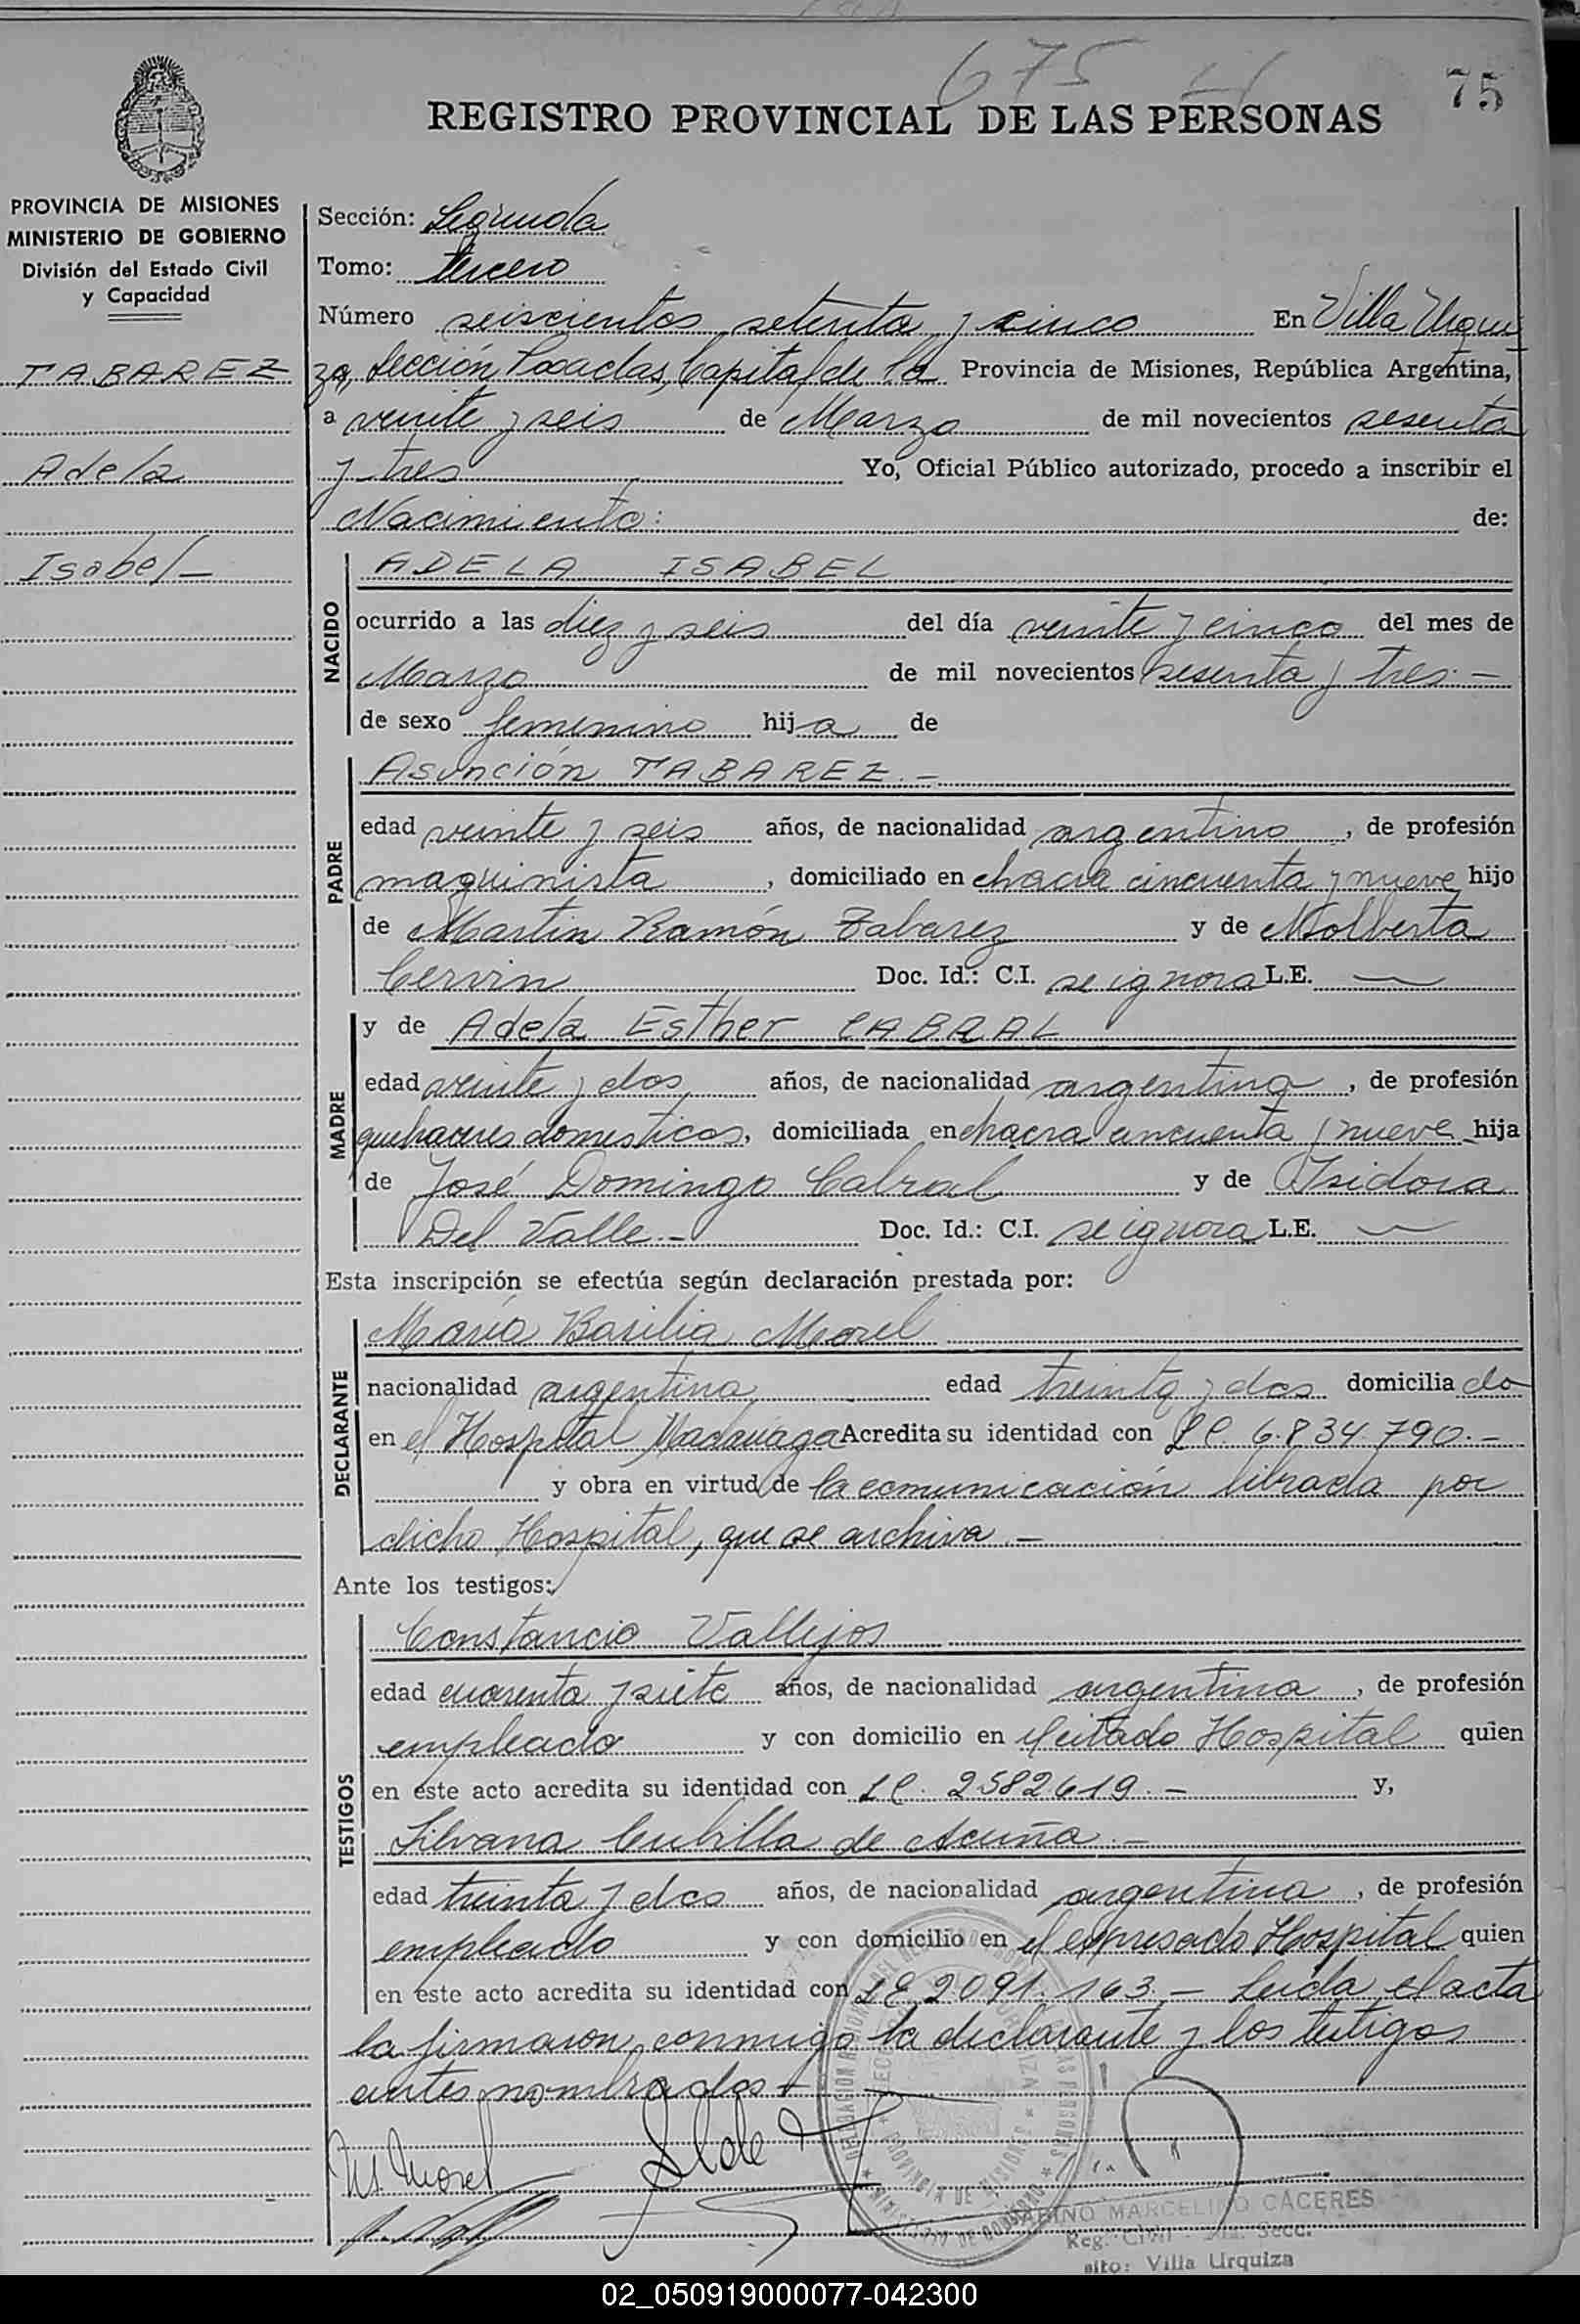 675
75
REGISTRO PROVINCIAL DE LAS PERSONAS
PROVINCIA DE MISIONES
MINISTERIO DE GOBIERNO
División del Estado Civil
y Capacidad
TABAREZ
Adela
Isabel -
Sección: Segunda
Tomo: tercero
Número seiscientos setenta y cinco En Villa Urqui
za, Sección Posadas, Capital de la Provincia de Misiones, República Argentina,
a veinte y seis de Marzo de mil novecientos sesenta
y tres Yo, Oficial Público autorizado, procedo a inscribir el
Nacimiento: de:
NACIDO
ADELA ISABEL
ocurrido a las diez y seis del día veinte y cinco del mes de
Marzo de mil novecientos sesenta y tres. -
de sexo femenino hija de
PADRE
Asunción TABAREZ. -
edad veinte y seis años, de nacionalidad argentino, de profesión
maquinista, domiciliado en chacra cincuenta y nueve hijo
de Martin Ramón Tabarez y de
Doc. Id.: C.I. se ignora L.E. —
MADRE
y de Adela Esther CABRAL
edad veinte y dos años, de nacionalidad argentina, de profesión
quehaceres domesticos, domiciliada en chacra cincuenta y nueve hija
de José Domingo Cabral y de Isidora
Del Valle. - Doc. Id.: C.I. se ignora L.E. —
Esta inscripción se efectúa según declaración prestada por:
DECLARANTE
María Basilia Morel
nacionalidad argentina edad treinta y dos domiciliado
en el Hospital Madariaga Acredita su identidad con LC. 6.834.790. -
y obra en virtud de la comunicación librada por
dicho Hospital, que se archiva. -
Ante los testigos:
TESTIGOS
Constancio Vallejos
edad cuarenta y siete años, de nacionalidad argentina, de profesión
empleado y con domicilio en el citado Hospital quien
en este acto acredita su identidad con 2582619. - y,
Silvana Cubilla de Acuña. -
edad treinta y dos años, de nacionalidad argentina, de profesión
empleado y con domicilio en el expresado Hospital quien
en este acto acredita su identidad con 2.091.163. - Leida el acta
la firmaron conmigo la declarante y los testigos
antes nombrados -
M. Morel
SABINO MARCELINO CACERES
Reg. Civil Secc.
sito: Villa Urquiza
02_050919000077-042300